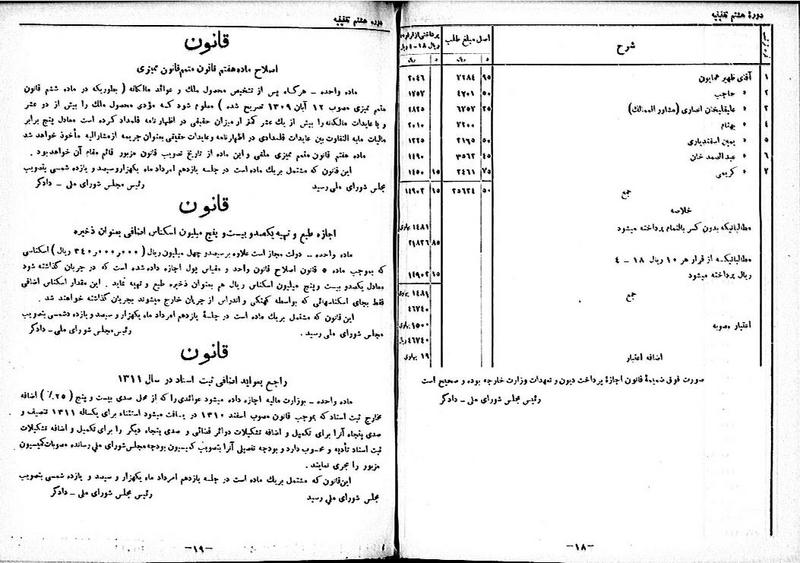 دورهٔ هشتم تقنینیه
شرح
اصل مبلغ طلب
۱ آقای ظهیر همایون ۹۵ ۲۲۸۴ ۲۰۴۶
۲ » حاجب ۵۰ ۴۷۰۱
۳ » علیقلیخان انصاری (مشاورالممالک) ۲۵ ۶۷۵۷ ۱۸۲۵
۴ » بهنام ۷۲۰۰ ۲۰۱۰
۵ » یمین اسفندیاری ۵۰ ۲۱۹۵ ۱۲۲۵
۶ » عبدالصمد خان ۴۵ ۳۵۶۲ ۱۴۹۰
۷ » کریمی ۷۵ ۲۴۶۱ ۱۵ ۱۴۰۰
جمع ۵۰ ۲۵۶۲۴ ۱۵ ۱۴۹۰۲
خلاصه
مطالباتیکه بدون کسر بالتمام پرداخته میشود
مطالباتیکه از قرار هر ۱۰ ریال ۱۸ – ۴
ریال پرداخته میشود ۱۵ ۱۴۹۰۲
جمع
اعتبار مصوبه
اضافه اعتبار
صورت فوق ضمیمهٔ قانون اجازهٔ پرداخت دیون و تعهدات وزارت خارجه بوده و صحیح است
رئیس مجلس شورای ملی – دادگر
–۱۸–
دوره هشتم تقنینیه
قانون
اصلاح ماده هفتم قانون متمم قانون ممیزی
ماده واحده – هرگاه پس از تشخیص محصول ملک و عوائد مالکانه (بطوریکه در ماده ششم قانون
متمم ممیزی مصوب ۱۲ آبان ۱۳۰۹ تصریح شده) معلوم شود که مؤدی محصول ملک را بیش از دو عشر
و یا عایدات مالکانه را بیش از یک عشر کمتر از میزان حقیقی در اظهارنامه قلمداد کرده است معادل پنج برابر
مالیات مابه التفاوت بین عایدات قلمدادی در اظهارنامه و عایدات حقیقی بعنوان جریمه ازمشارالیه مأخوذ خواهد شد
ماده هفتم قانون متمم ممیزی ملغی و این ماده از تاریخ تصویب قانون مزبور قائم مقام آن خواهدبود.
این قانون که مشتمل بر یک ماده است در جلسه یازدهم امرداد ماه یکهزاروسیصد و یازده شمسی بتصویب
مجلس شورای ملی رسید رئیس مجلس شورای ملی – دادگر
قانون
اجازه طبع و تهیه یکصدو بیست و پنج میلیون اسکناس اضافی بعنوان ذخیره
ماده واحده – دولت مجاز است علاوه برسیصدو چهل میلیون ریال (۳۴۰٫۰۰۰٫۰۰۰ ریال) اسکناسی
که بموجب ماده ۵ قانون اصلاح قانون واحد و مقیاس پول اجازه داده شده است که در جریان گذاشته شود
معادل یکصدو بیست و پنج میلیون اسکناس ریال هم بعنوان ذخیره طبع و تهیه نماید. این مقدار اسکناس اضافی
فقط بجای اسکناسهائی که بواسطه کهنگی و اندراس از جریان خارج میشوند بجریان گذاشته خواهند شد.
این قانون که مشتمل بر یک ماده است در جلسهٔ یازدهم امرداد ماه یکهزار و سیصد و یازده شمسی بتصویب
مجلس شورای ملی رسید. رئیس مجلس شورای ملی – دادگر
قانون
راجع بعواید اضافی ثبت اسناد در سال ۱۳۱۱
ماده واحده – بوزارت مالیه اجازه داده میشود عوائدی را که از محل صدی بیست و پنج (۲۵٪) اضافه
مخارج ثبت اسناد که بموجب قانون مصوب اسفند ۱۳۱۰ دریافت میشود استثناء برای یکساله ۱۳۱۱ تنصیف و
صدی پنجاه آنرا برای تکمیل و اضافه تشکیلات دوائر قضائی و صدی پنجاه دیگر را برای تکمیل و اضافه تشکیلات
ثبت اسناد تأدیه و محسوب دارد و بودجه تفصیلی آنرا بتصویب کمیسیون بودجه مجلس شورای ملی رسانده مصوبات کمیسیون
مزبور را مجری نمایند.
این قانون که مشتمل بر یک ماده است در جلسه یازدهم امرداد ماه یکهزار و سیصد و یازده شمسی بتصویب
مجلس شورای ملی رسید رئیس مجلس شورای ملی – دادگر
–۱۹–